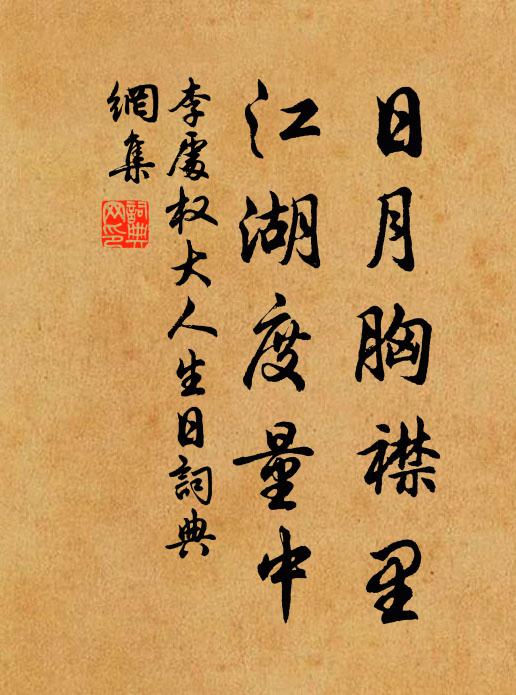 日月胸襟里
江湖度量中
李處权大人生日詞典
網集
詞典
网印